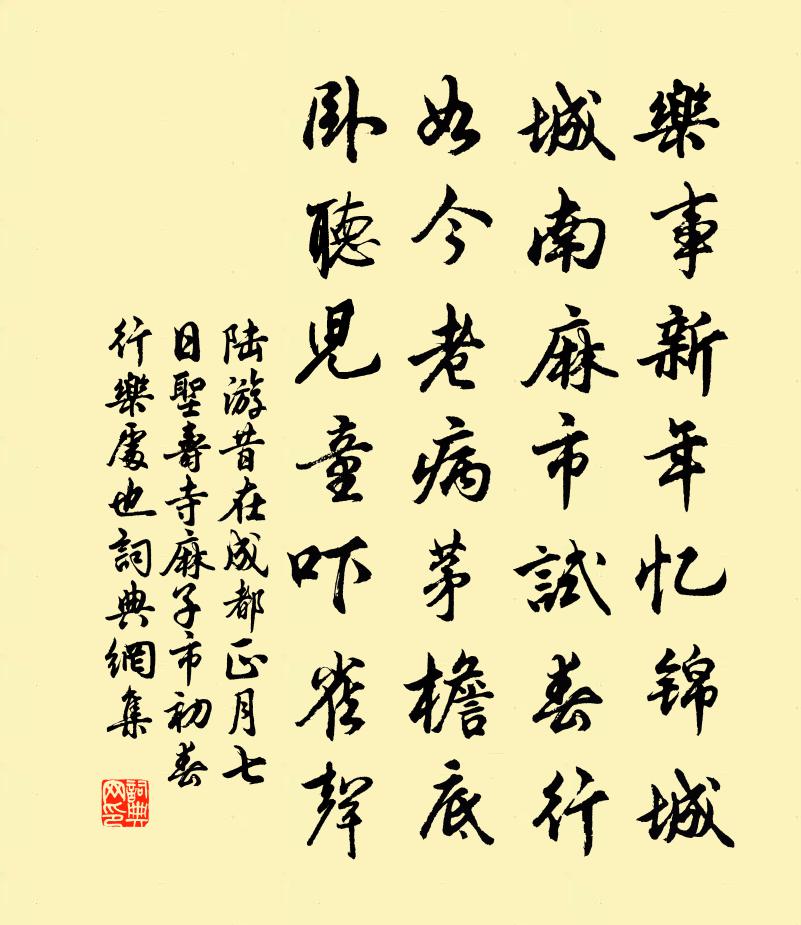 樂事新年忆锦城
城南麻市試春行
如今老病茅檐底
卧聽兒童吓雀聲
陆游昔在成都正月七
日聖壽寺麻子市初春
行樂處也詞典網集
詞典网印